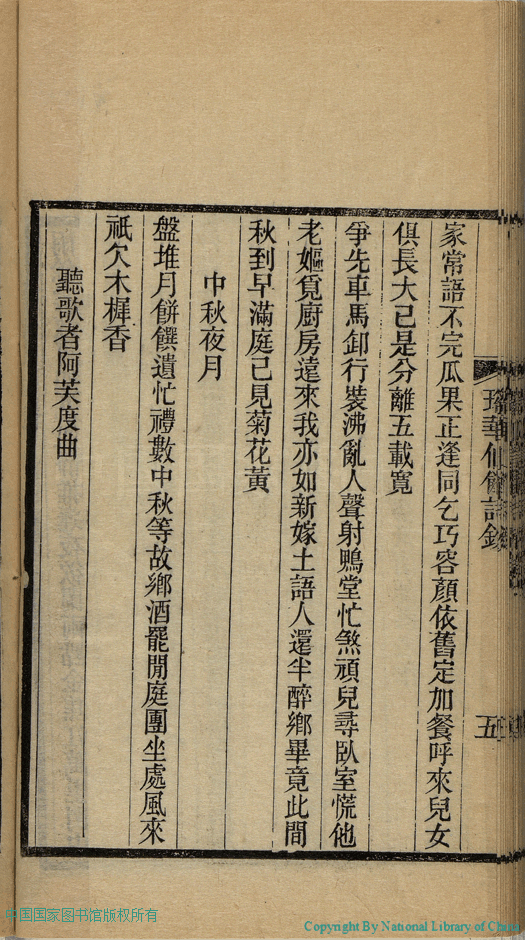 家常語不完瓜果正逢同乞巧容顏依舊定加餐呼來兒女
俱長大已是分離五載寬
爭先車馬卸行裝沸亂人聲射鴨堂忙煞頑兒尋臥室慌他
老嫗覓廚房遠來我亦如新嫁土語人還半醉鄉畢竟此間
秋到早滿庭已見菊花黃
中秋夜月
盤堆月餅饌遺忙禮數中秋等故鄉酒罷閒庭團坐處風來
祇欠木樨香
聽歌者阿芙度曲
華仙館詩鈔
五
中国国家图书馆版权所有
Copyright By National Library of China